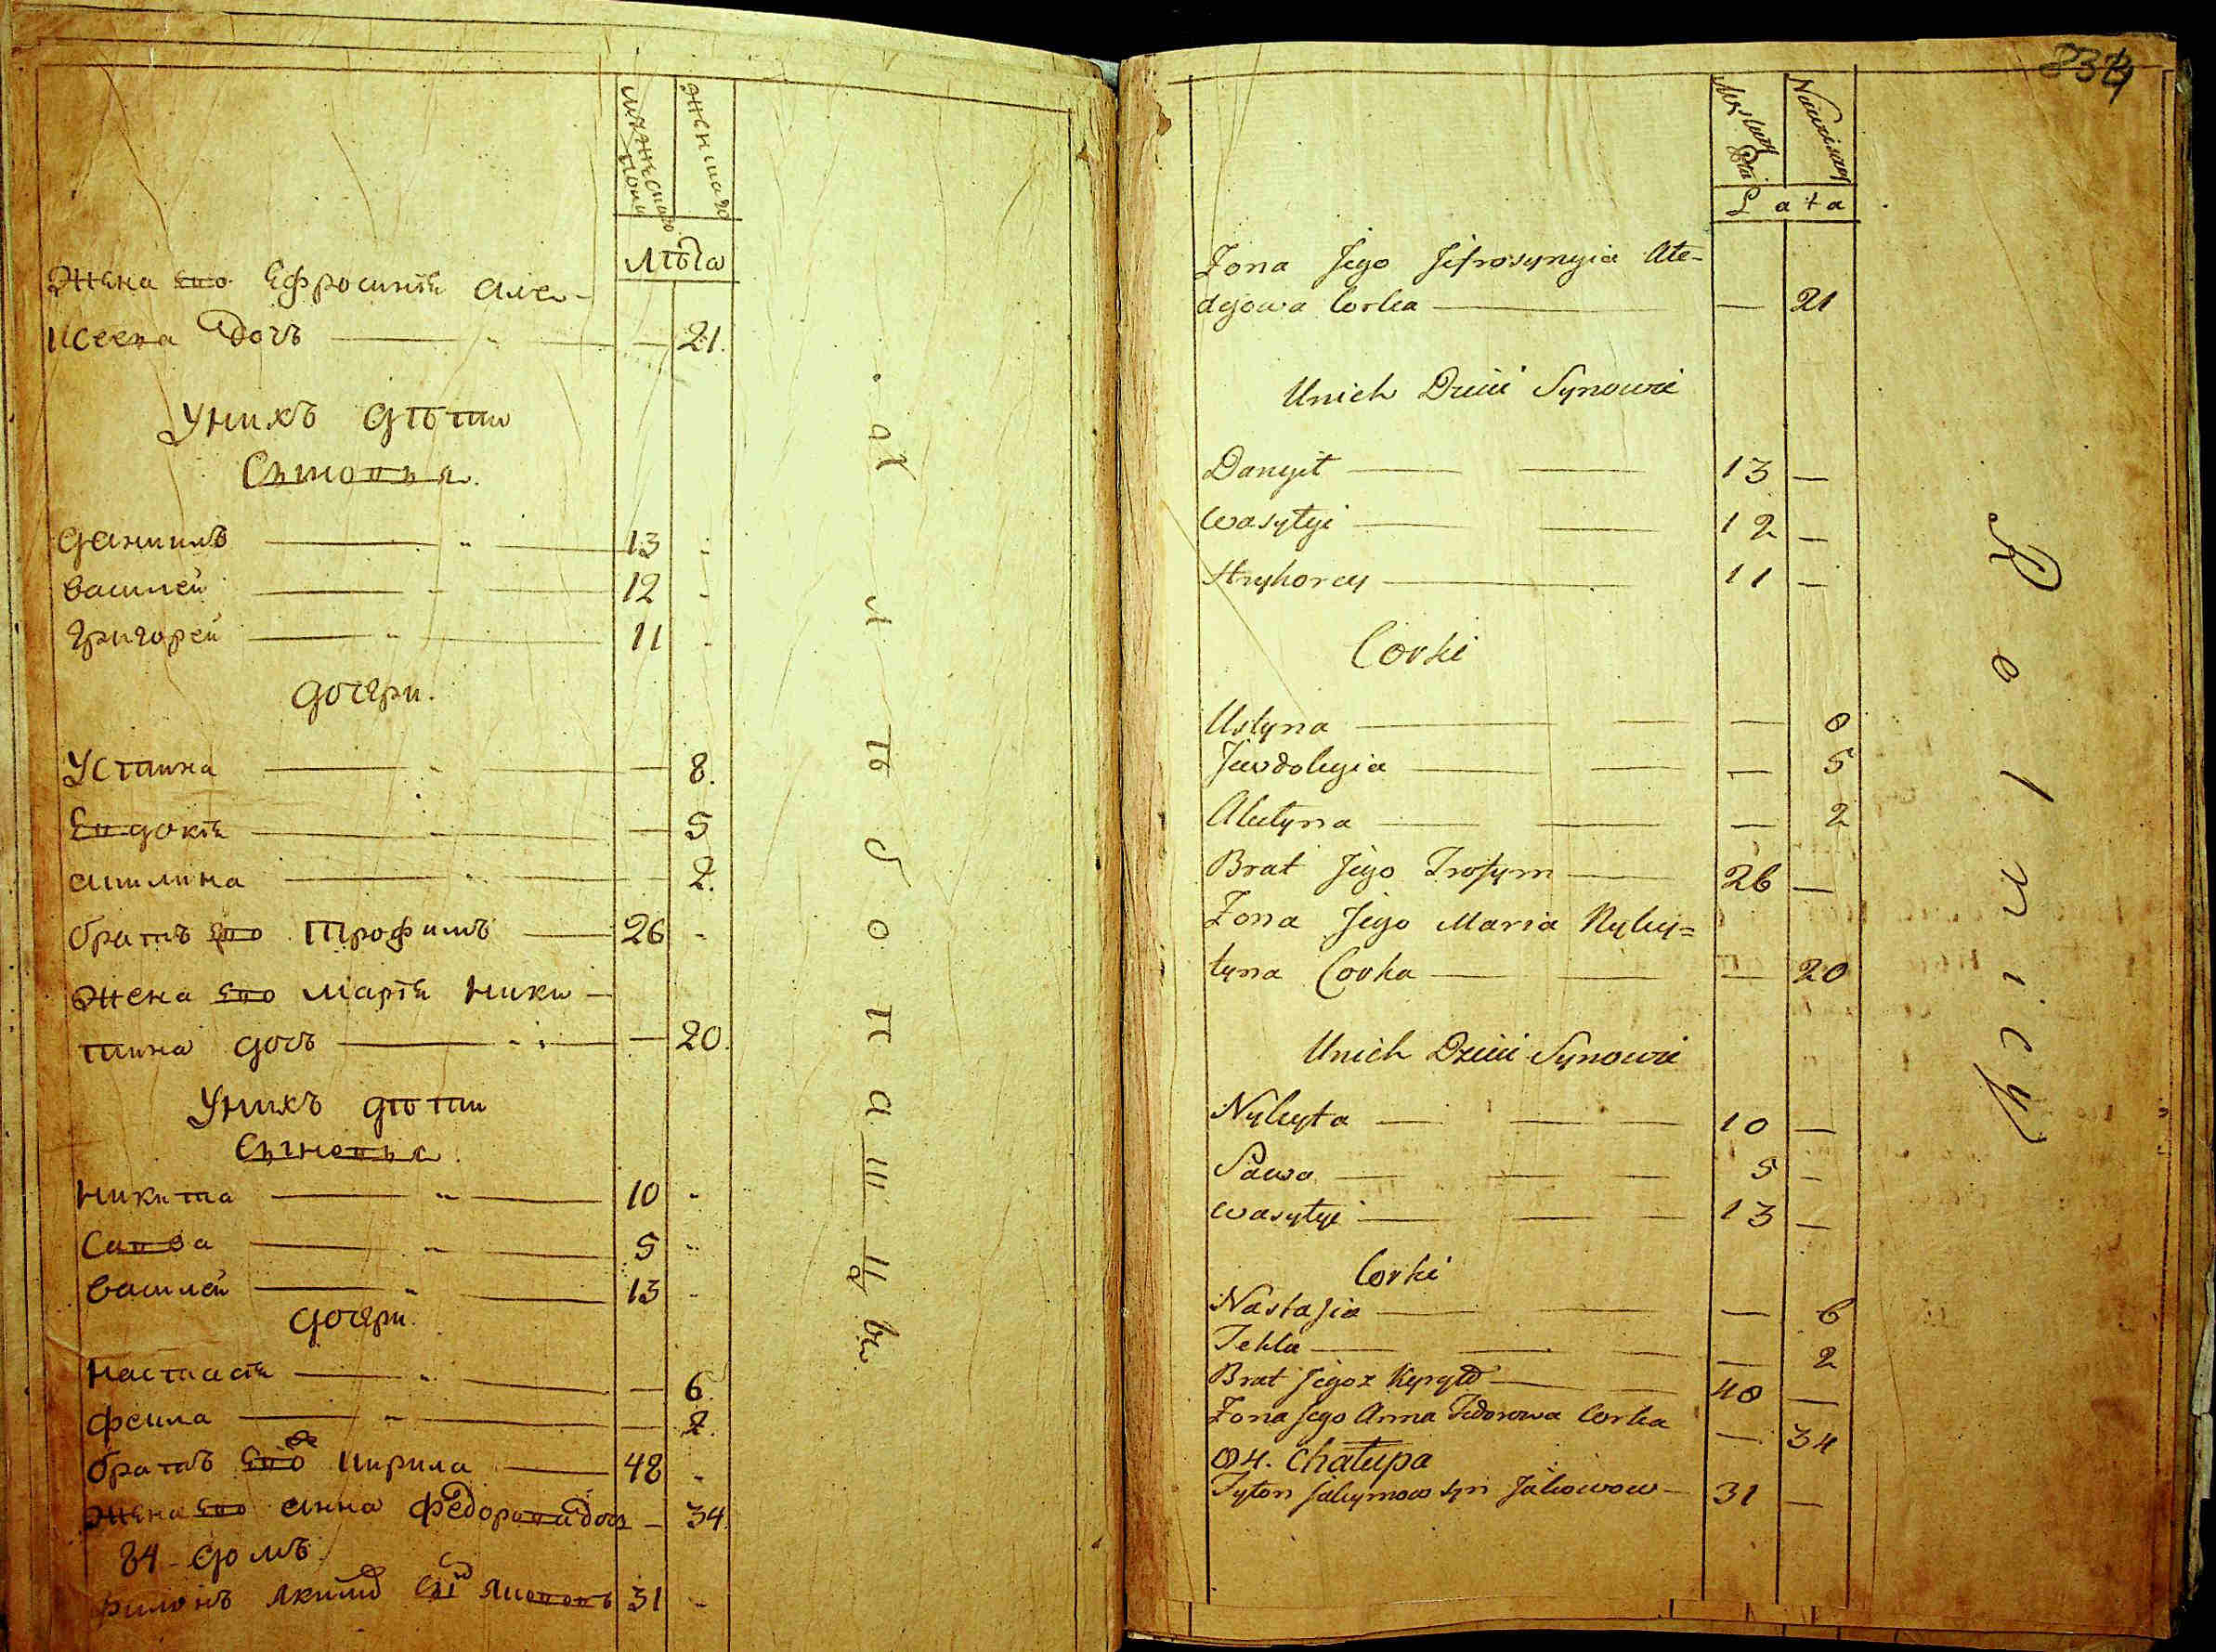 мужеска пола
женска
лѣта
Жена его Ефросинѣя Але-
ксеева дочь — 21.
Уних дѣти
Сыновья.
Данило 13 -
Василей 12 -
Григорей 11 -
дочери.
Устина — 8.
Евдокѣя — 5
Акилина — 2.
братъ его Трофимъ 26 -
Жена его Марѣя Ники-
тина дочь — 20.
Унихъ дѣти
Сыновья.
Никита 10 -
Савва 5 -
Василей 13 -
дочери.
Настасѣя — 6.
Фекла — 2.
братъ его Кирила 48 -
Жена его Анна Федорова дочь — 34.
84 - домъ
31 -
234
Męskiey Płci
Niewiesciey
Lata
Zona Jego Jefrosynyia Ałe-
dejowa Corka — 21
Unich Dzieci Synowie
Danyił 13 —
Wasyłyi 12 —
Hryhorey 11 —
Corki
Ustyna — 8
Jewdokyia — 5
Akułyna — 2
Brat Jego Trofym 26 —
Zona Jego Maria Nyky=
tyna Corka — 20
Unich Dzieci Synowie
Nykyta 10 —
Sawa 5 —
Wasyłyi 13 —
Corki
Nastasia — 6
Tekla — 2
Brat Jegoż Kyryło 48 —
Zona Jego Anna Fedorowa Corka — 34
84. Chałupa
Tyton Jakymow syn Jakowow 31 —